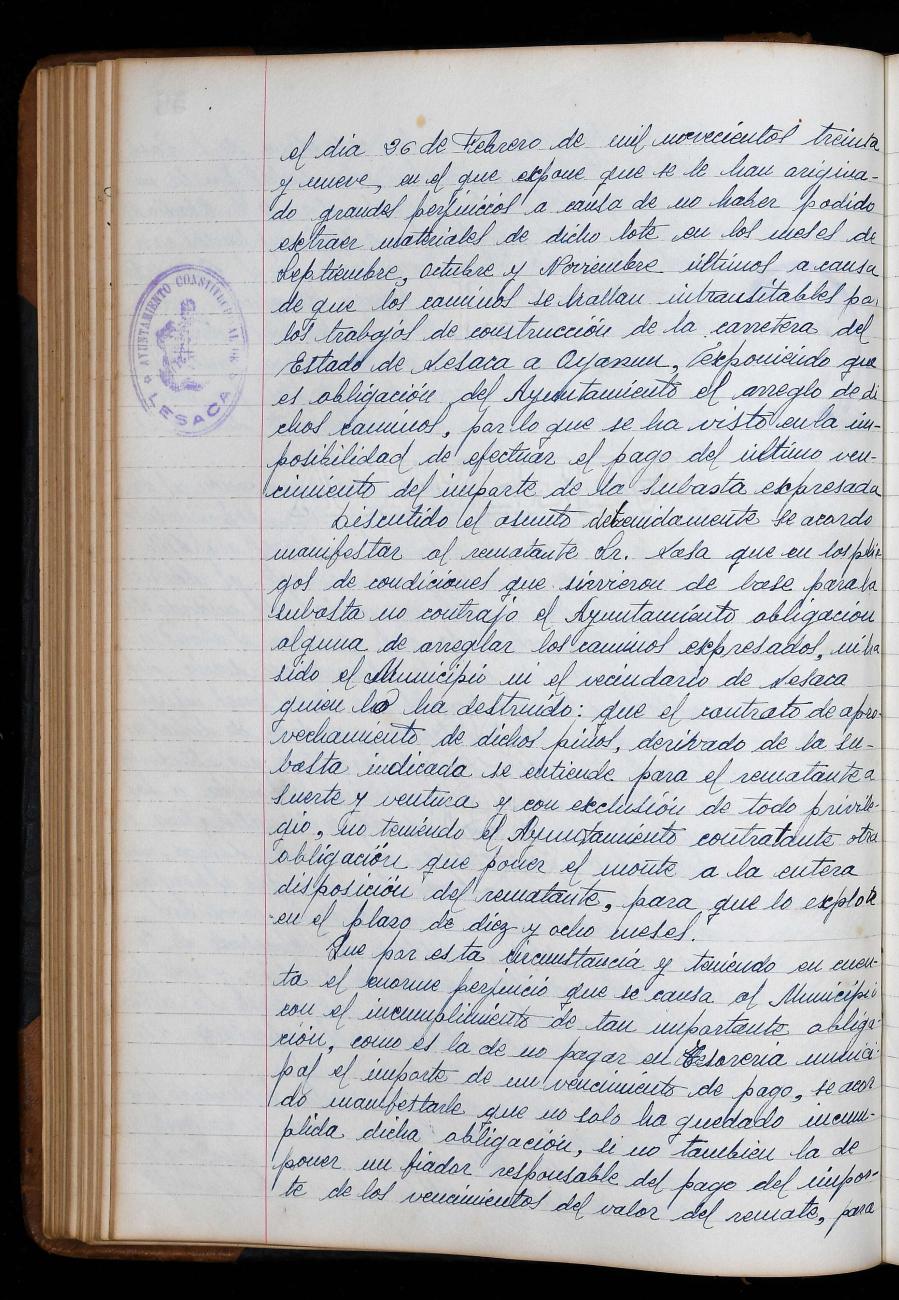 el dia 26 de Febrero de mil novecientos treinta
y nueve, en el que expone que se le han origina-
do grandes perjuicios a causa de no haber podido
extraer materiales de dicho lote en los meses de
Septiembre, Octubre y Noviembre últimos a causa
de que los caminos se hallan intransitables por
los trabajos de construcción de la carretera del
Estado de Lesaca a Oyarzun, exponiendo que
es obligación del Ayuntamiento el arreglo de di
chos caminos, por lo que se ha visto en la im-
posibilidad de efectuar el pago del último ven-
cimiento del importe de la subasta expresada
Discutido el asunto detenidamente se acordo
manifestar al rematante Sr. Lasa que en los plie
gos de condiciones que sirvieron de base para la
subasta no contrajo el Ayuntamiento obligación
alguna de arreglar los caminos expresados, ni ha
sido el Municipio ni el vecindario de Lesaca
quien lo ha destruido: que el contrato de apro-
vechamiento de dichos pinos, derivado de la su-
basta indicada se entiende para el rematante a
suerte y ventura y con exclusión de todo privile-
gio, no teniendo el Ayuntamiento contratante otra
obligación que poner el monte a la entera
disposición del rematante, para que lo explote
en el plazo de diez y ocho meses.
Que por esta circunstancia y teniendo en cuen-
ta el enorme perjuicio que se causa al Municipio
con el incumplimiento de tan importante obliga-
ción, como es la de no pagar en Tesoreria munici-
pal el importe de un vencimiento de pago, se acor
do manifestarle que no solo ha quedado incum-
plida dicha obligación, si no tambien la de
poner un fiador responsable del pago del impor-
te de los vencimientos del valor del remate, para
AYUNTAMIENTO CONSTITUCIONAL DE
LESACA